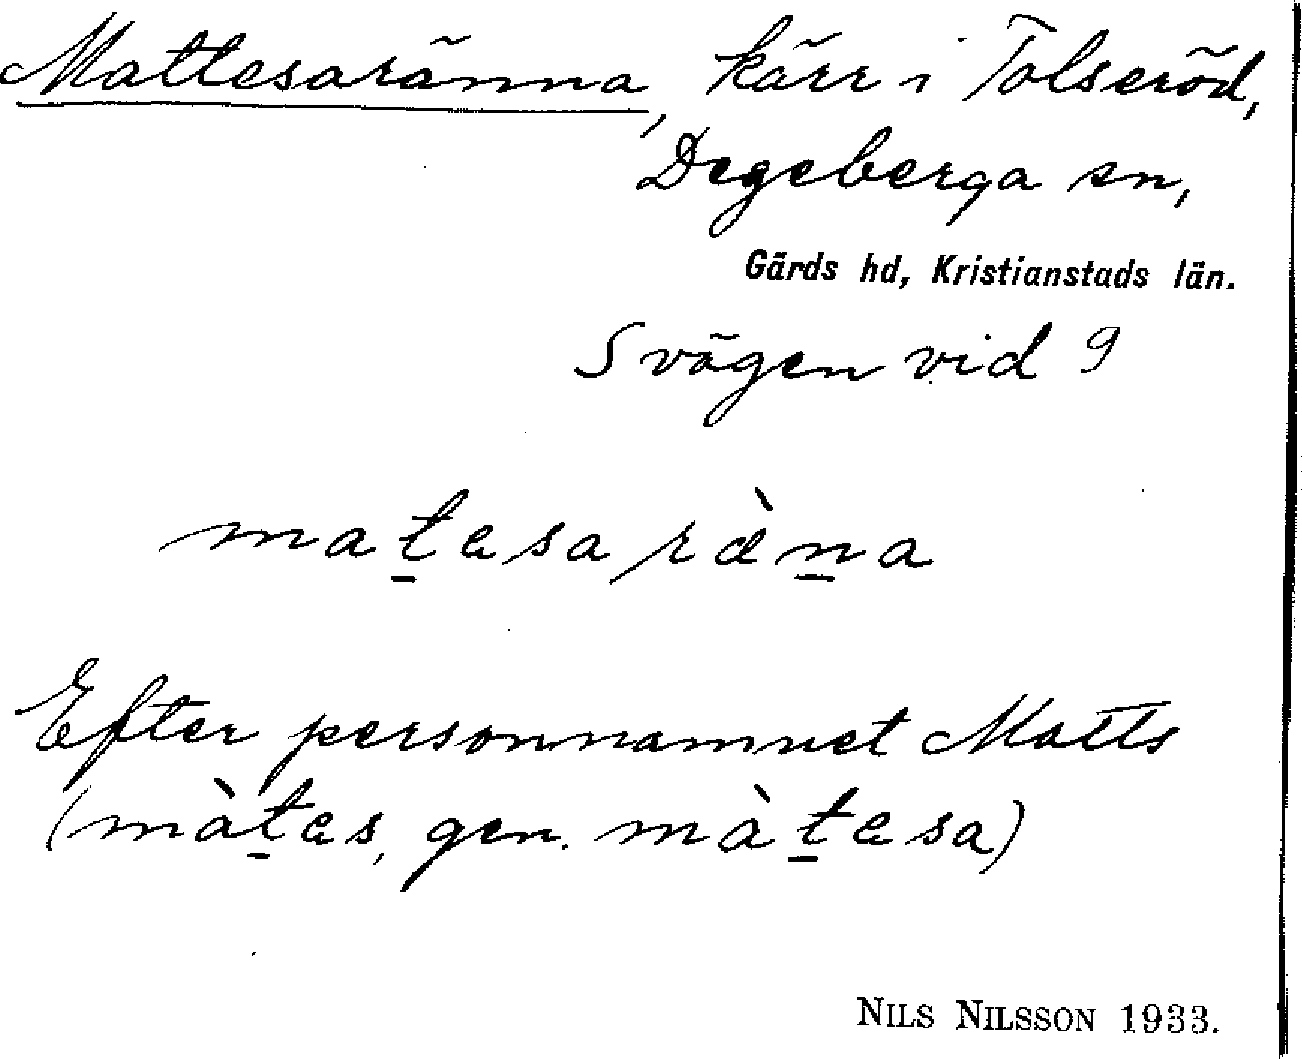 Mattesaränna, kärr i Tolseröd,
Degeberga sn,
Gärds hd, Kristianstads län.
S vägen vid 9
mat̲esaræ̀n̲a
Efter personnamnet Matts
(màt̲es, gen. màt̲esa)
NILS NILSSON 1933.